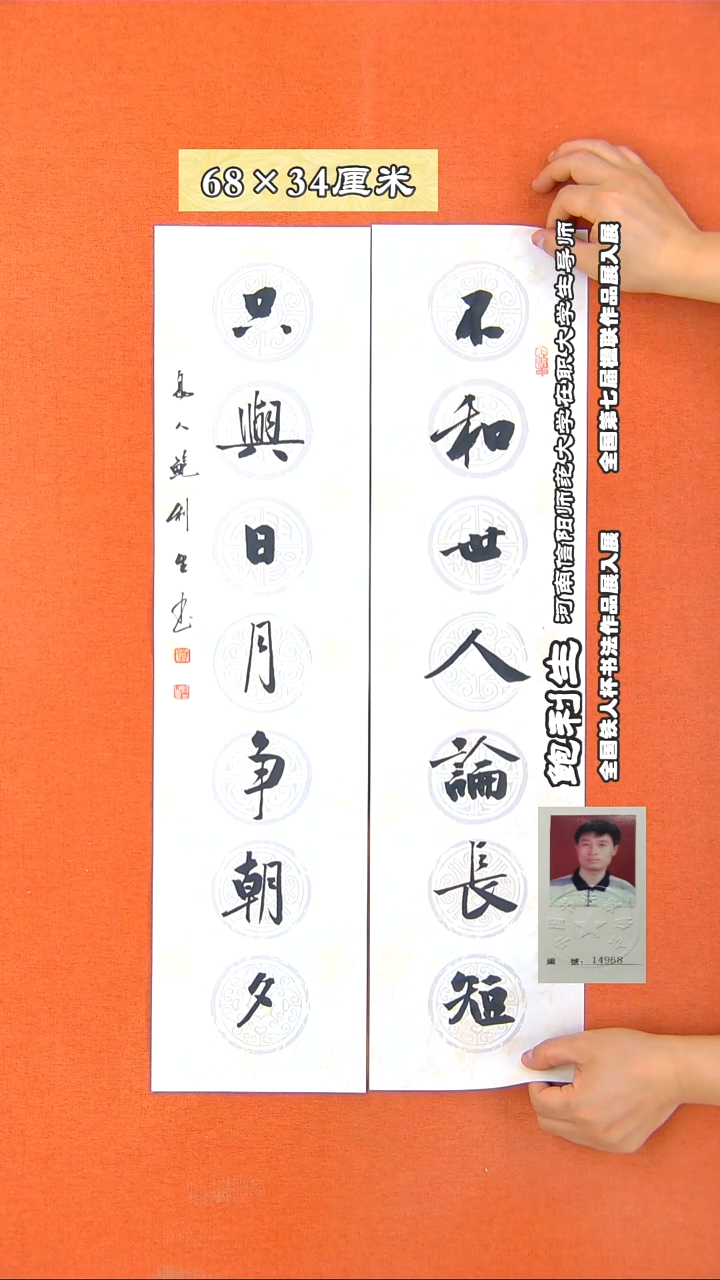 68×34厘米
不和世人論長短
只與日月争朝夕
鮑利生书
鲍利生
河南信阳师范大学在职大学生导师
全国第七届楹联作品展入展
全国铁人杯书法作品展入展
編 號：14968